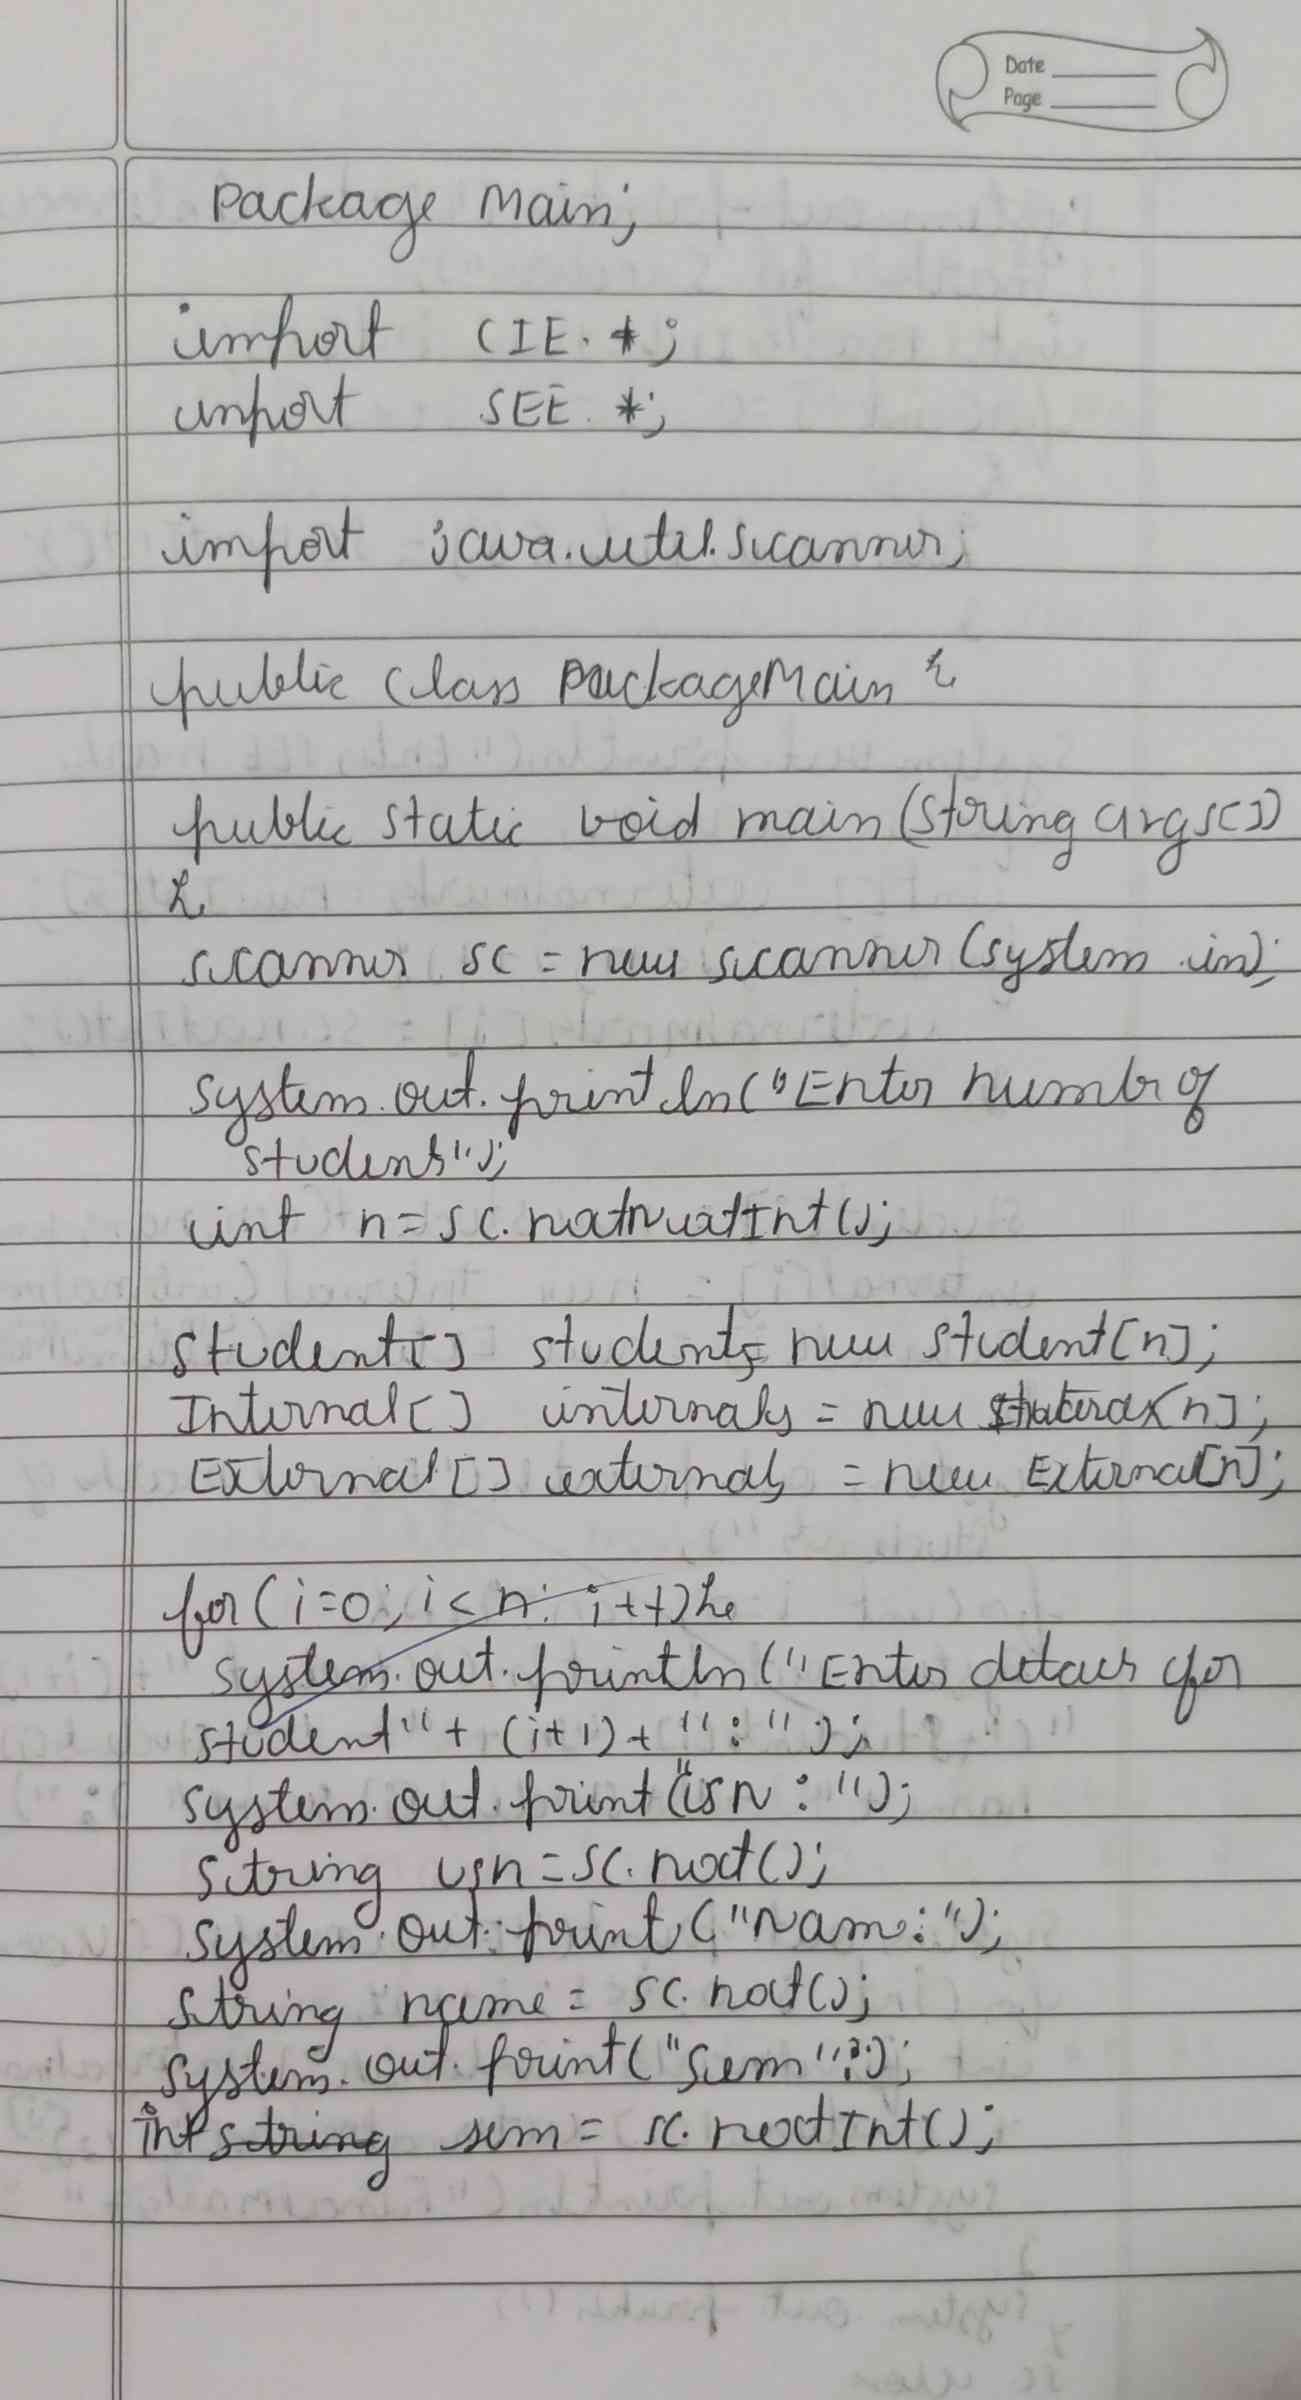 Date
Page
Package Main;
import CIE.*;
import SEE.*;
import java.util.scanner;
public class PackageMain {
public static void main(String args[])
{
scanner sc = new scanner(system.in);
system.out.println("Enter number of
students");
int n=sc.nextInt();
Student[] students= new student[n];
Internal[] internals = new [n];
External[] externals = new External[n];
for(i=0; i<n; i++){
system.out.println("Enter details for
student"+ (i+1)+ ":");
system.out.print("usn:");
string usn=sc.next();
system.out.print("Name:");
string name= sc.next();
system.out.print("sem":);
int string sem= sc.nextInt();